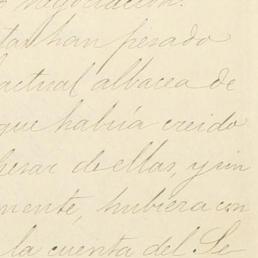 negociacion.
tas han pesado
actual albacea de
que habia creido
pesar de ellas, y sin
mente, hubiera con
la cuenta del Se